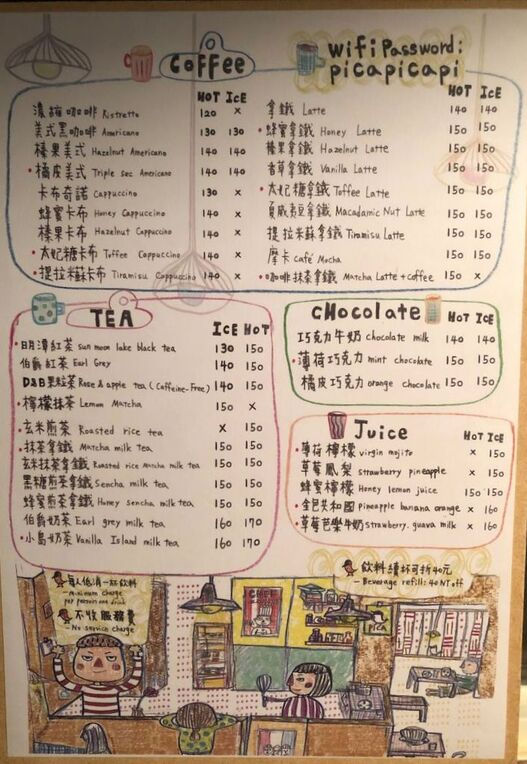 Coffee
HOT ICE
濃縮咖啡 Ristretto 120 x
美式黑咖啡 Americano 130 130
榛果美式 Hazelnut Americano 140 140
•橘皮美式 Triple sec Americano 140 140
卡布奇諾 Cappuccino 130 x
蜂蜜卡布 Honey Cappuccino 140 x
榛果卡布 Hazelnut Cappuccino 140 x
•太妃糖卡布 Toffee Cappuccino 140 x
•提拉米蘇卡布 Tiramisu Cappuccino 140 x
wifi Password:
picapicapi
HOT ICE
拿鐵 Latte 140 140
•蜂蜜拿鐵 Honey Latte 150 150
榛果拿鐵 Hazelnut Latte 150 150
香草拿鐵 Vanilla Latte 150 150
•太妃糖拿鐵 Toffee Latte 150 150
夏威夷豆拿鐵 Macadamic Nut Latte 150 150
提拉米蘇拿鐵 Tiramisu Latte 150 150
摩卡 Café Mocha 150 150
•咖啡抹茶拿鐵 Matcha Latte + coffee 150 x
TEA
ICE HOT
•日月潭紅茶 sun moon lake black tea 130 150
伯爵紅茶 Earl Grey 140 150
D&B果粒茶 Rose & apple tea (Caffeine-Free) 140 150
•檸檬抹茶 Lemon Matcha 150 x
•玄米煎茶 Roasted rice tea x 150
•抹茶拿鐵 Matcha milk tea 150 150
玄米抹茶拿鐵 Roasted rice Matcha milk tea 150 150
黑糖煎茶拿鐵 Sencha milk tea 150 150
蜂蜜煎茶拿鐵 Honey sencha milk tea 150 150
伯爵奶茶 Earl grey milk tea 160 170
•小島奶茶 Vanilla Island milk tea 160 170
CHocolate
HOT ICE
巧克力牛奶 chocolate milk 140 140
•薄荷巧克力 mint chocolate 150 150
橘皮巧克力 orange chocolate 150 150
Juice
HOT ICE
•薄荷檸檬 virgin mojito x 150
草莓鳳梨 strawberry pineapple x 150
蜂蜜檸檬 Honey lemon juice 150 150
•金芭共和國 pineapple banana orange x 160
•草莓芭樂牛奶 strawberry. guava milk x 160
飲料續杯可折40元
- Beverage refill: 40 NT off
每人低消一杯飲料
- minimum charge
per person one drink
不收服務費
- No service charge
CHEF
PICA